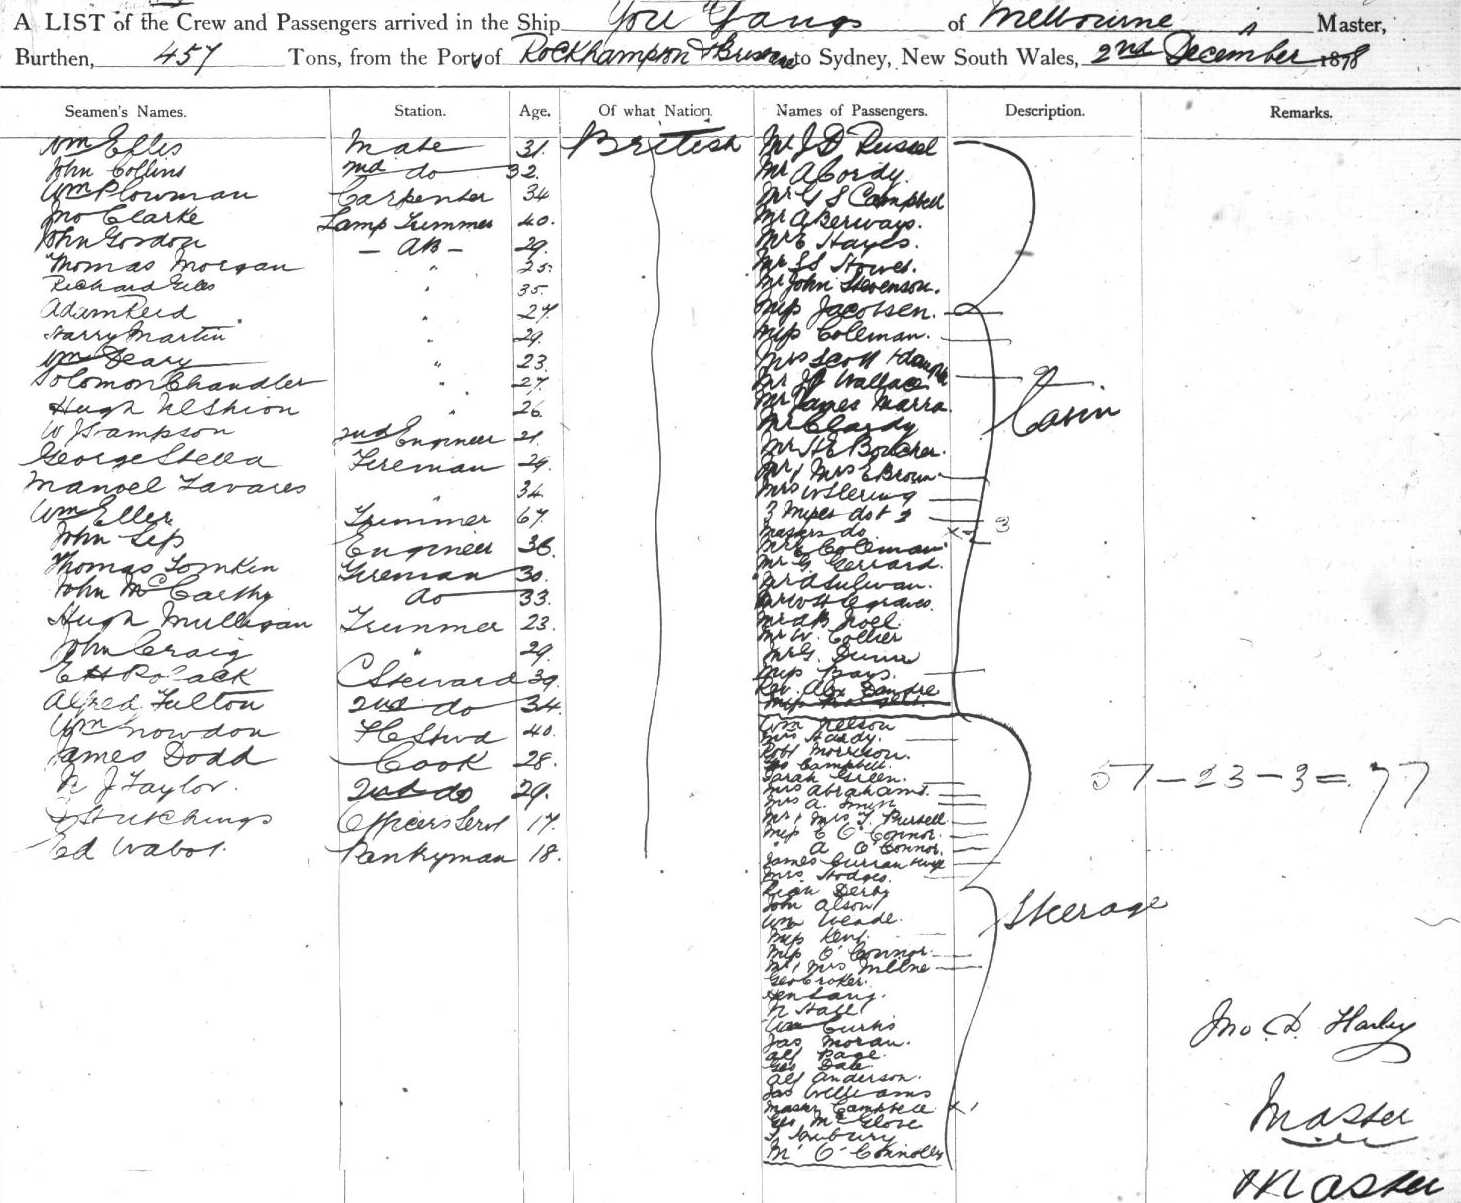 A LIST of the Crew and Passengers arrived in the Ship You Yangs of Melbourne Master,
Burthen, 457 Tons, from the Port of Rockhampton & Brisbane to Sydney, New South Wales, 2nd December 1878
Seamen's Names. Station. Age. Of what Nation. Names of Passengers. Description. Remarks.
Wm Elles Mate 31. British Mr J D Russel
John Collins 2nd do 32. Mr A Cordy.
Wm Plowman Carpenter 34 Mr G S Campbell
Jno Clarke Lamp Trimmer 40. Mr A Berways.
John Gordon - AB - 29. Mr E Hayes.
Thomas Morgan " 25. Mr Stowes.
Richard Giles " 35. Mr John Stevenson.
Adam Reid " 27. Miss Jacobsen.
Harry Martin " 29. Miss Coleman.
Wm Deary " 23. Mrs Scott &
Solomon Chandler " 27. Mr Wallace
Hugh " 26. Mr James Marra.
Cabin
W J Sampson 2nd Engineer 21. Mr Clardy
Mr H E Boucher.
George Stella Fireman 29. Mr & Mrs E Brown
Manoel Tavares " 34. Mrs
Wm Eller Trimmer 67. 3 Misses do & 2
Masters do x 2 3
John Lep Engineer 36. Mr Coleman
Thomas Tomkin Fireman 30. Mr G. Gerrard.
Mr A Sulivan.
John McCarthy do 33. Mr W H Cgraves.
Hugh Mulligan Trimmer 23. Mr A B Noel.
Mr W. Collier
John Craig " 29. Mr G. Dunn
E H Polack C Steward 39. Miss Bays.
Alfred Fulton 2nd do 34. Rev. Alex
Wm Snowdon F C Stwd 40. Wm Nelson
Mrs Hardy.
James Dodd Cook 28. Robt Morrison.
Campbell.
Sarah Green.
N J Taylor. 2nd do 29. Mrs Abrahams.
57 - 23 - 3 = 77
Mrs A. Smith
Hutchings Officers Servt 17. Mr & Mrs T. Pursell
Miss E O'Connor.
Ed Wabot. Pantryman 18. " A O'Connor.
James Curran & wife
Mrs Hodges.
Derby
John Alson
Steerage
Wm Weade.
Miss Kent.
Miss O'Connor.
Mr & Mrs Milne
Geo Croker.
Hen Lang.
N Hall
Wm Curtis
Jas Moran.
Alf Page.
Geo Dale
Alf Anderson.
Jas Williams
Master Campbell x 1
Geo McGlove
T
M O'Connolly
Jno. D. Harley
Master